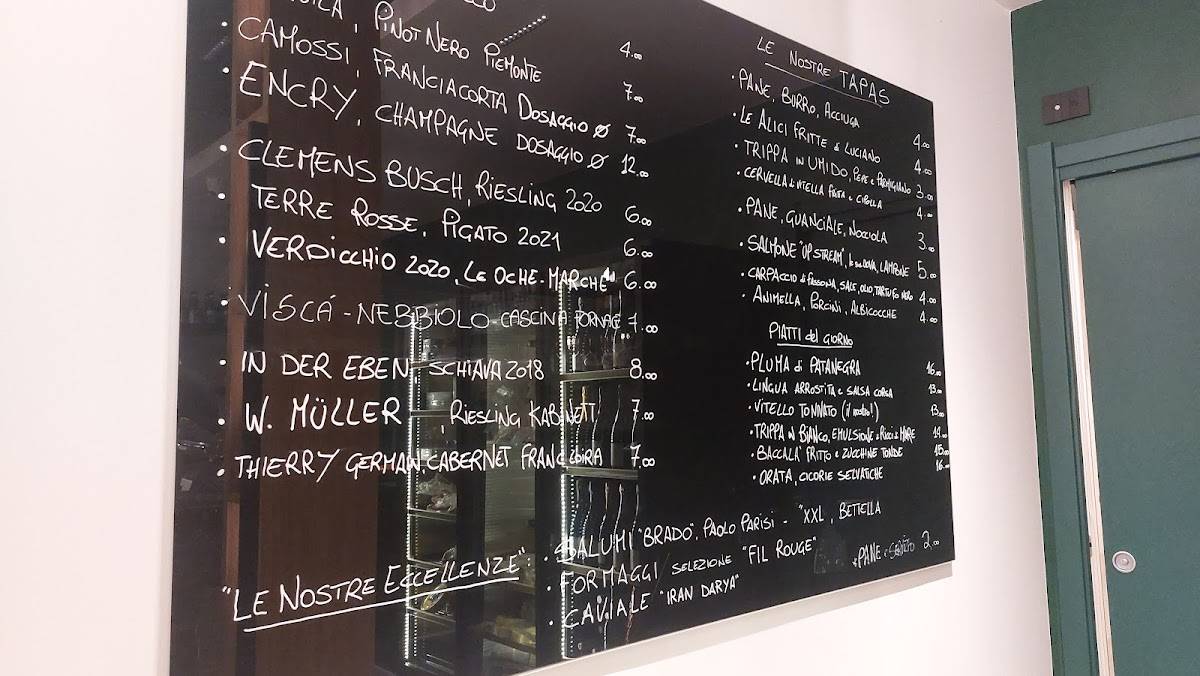 PINOT NERO PIEMONTE 4.00
· CAMOSSI, FRANCIACORTA DOSAGGIO Ø 7.00
7.00
· ENCRY, CHAMPAGNE DOSAGGIO Ø 12.00
· CLEMENS BUSCH, RIESLING 2020 6.00
· TERRE ROSSE, PIGATO 2021 6.00
· VERDICCHIO 2020, LE OCHE-MARCHE 6.00
· VISCÁ - NEBBIOLO - CASCINA FORNACE 7.00
· IN DER EBEN, SCHIAVA 2018 8.00
· W. MÜLLER, RIESLING KABINETT 7.00
· THIERRY GERMAIN, CABERNET FRANC LOIRA 7.00
LE NOSTRE TAPAS
· PANE, BURRO, ACCIUGA 4.00
· LE ALICI FRITTE di LUCIANO 4.00
· TRIPPA IN UMIDO, PEPE e PARMIGIANO 3.00
· CERVELLA di VITELLA FRITTA e CIPOLLA 4.00
· PANE, GUANCIALE, NOCCIOLA 3.00
· SALMONE "UPSTREAM", le sue UOVA, LAMPONE 5.00
· CARPACCIO di FASSONA, SALE, OLIO, TARTUFO NERO 4.00
· ANIMELLA, PORCINI, ALBICOCCHE 4.00
PIATTI del GIORNO
· PLUMA di PATANEGRA 16.00
· LINGUA ARROSTITA e SALSA 13.00
· VITELLO TONNATO (il nostro!) 13.00
· TRIPPA IN BIANCO, EMULSIONE di RICCI di MARE
· BACCALÀ FRITTO e ZUCCHINE TONDE 15.00
· ORATA, CICORIE SELVATICHE 16.00
"LE NOSTRE ECCELLENZE":
· SALUMI "BRADO", PAOLO PARISI - "XXL, BETTELLA
· FORMAGGI SELEZIONE "FIL ROUGE"
· CAVIALE "IRAN DARYA"
*PANE e SERVIZIO 2.00